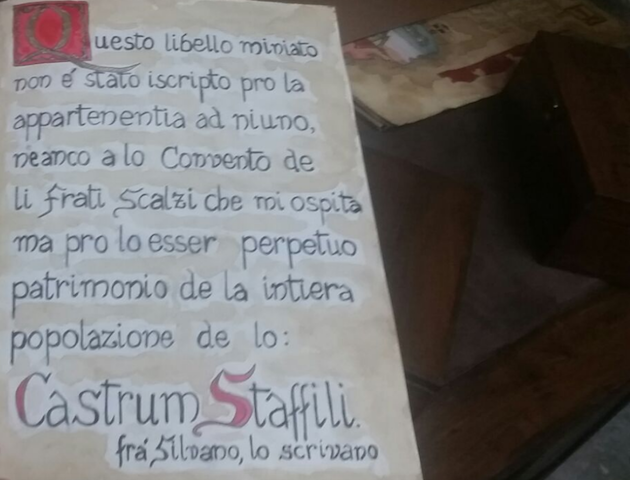 Questo libello miniato
non é stato iscripto pro la
appartenentia ad niuno,
neanco a lo Convento de
li frati Scalzi che mi ospita
ma pro lo esser perpetuo
patrimonio de la intiera
popolazione de lo:
Castrum Staffili.
frá Silvano, lo scrivano